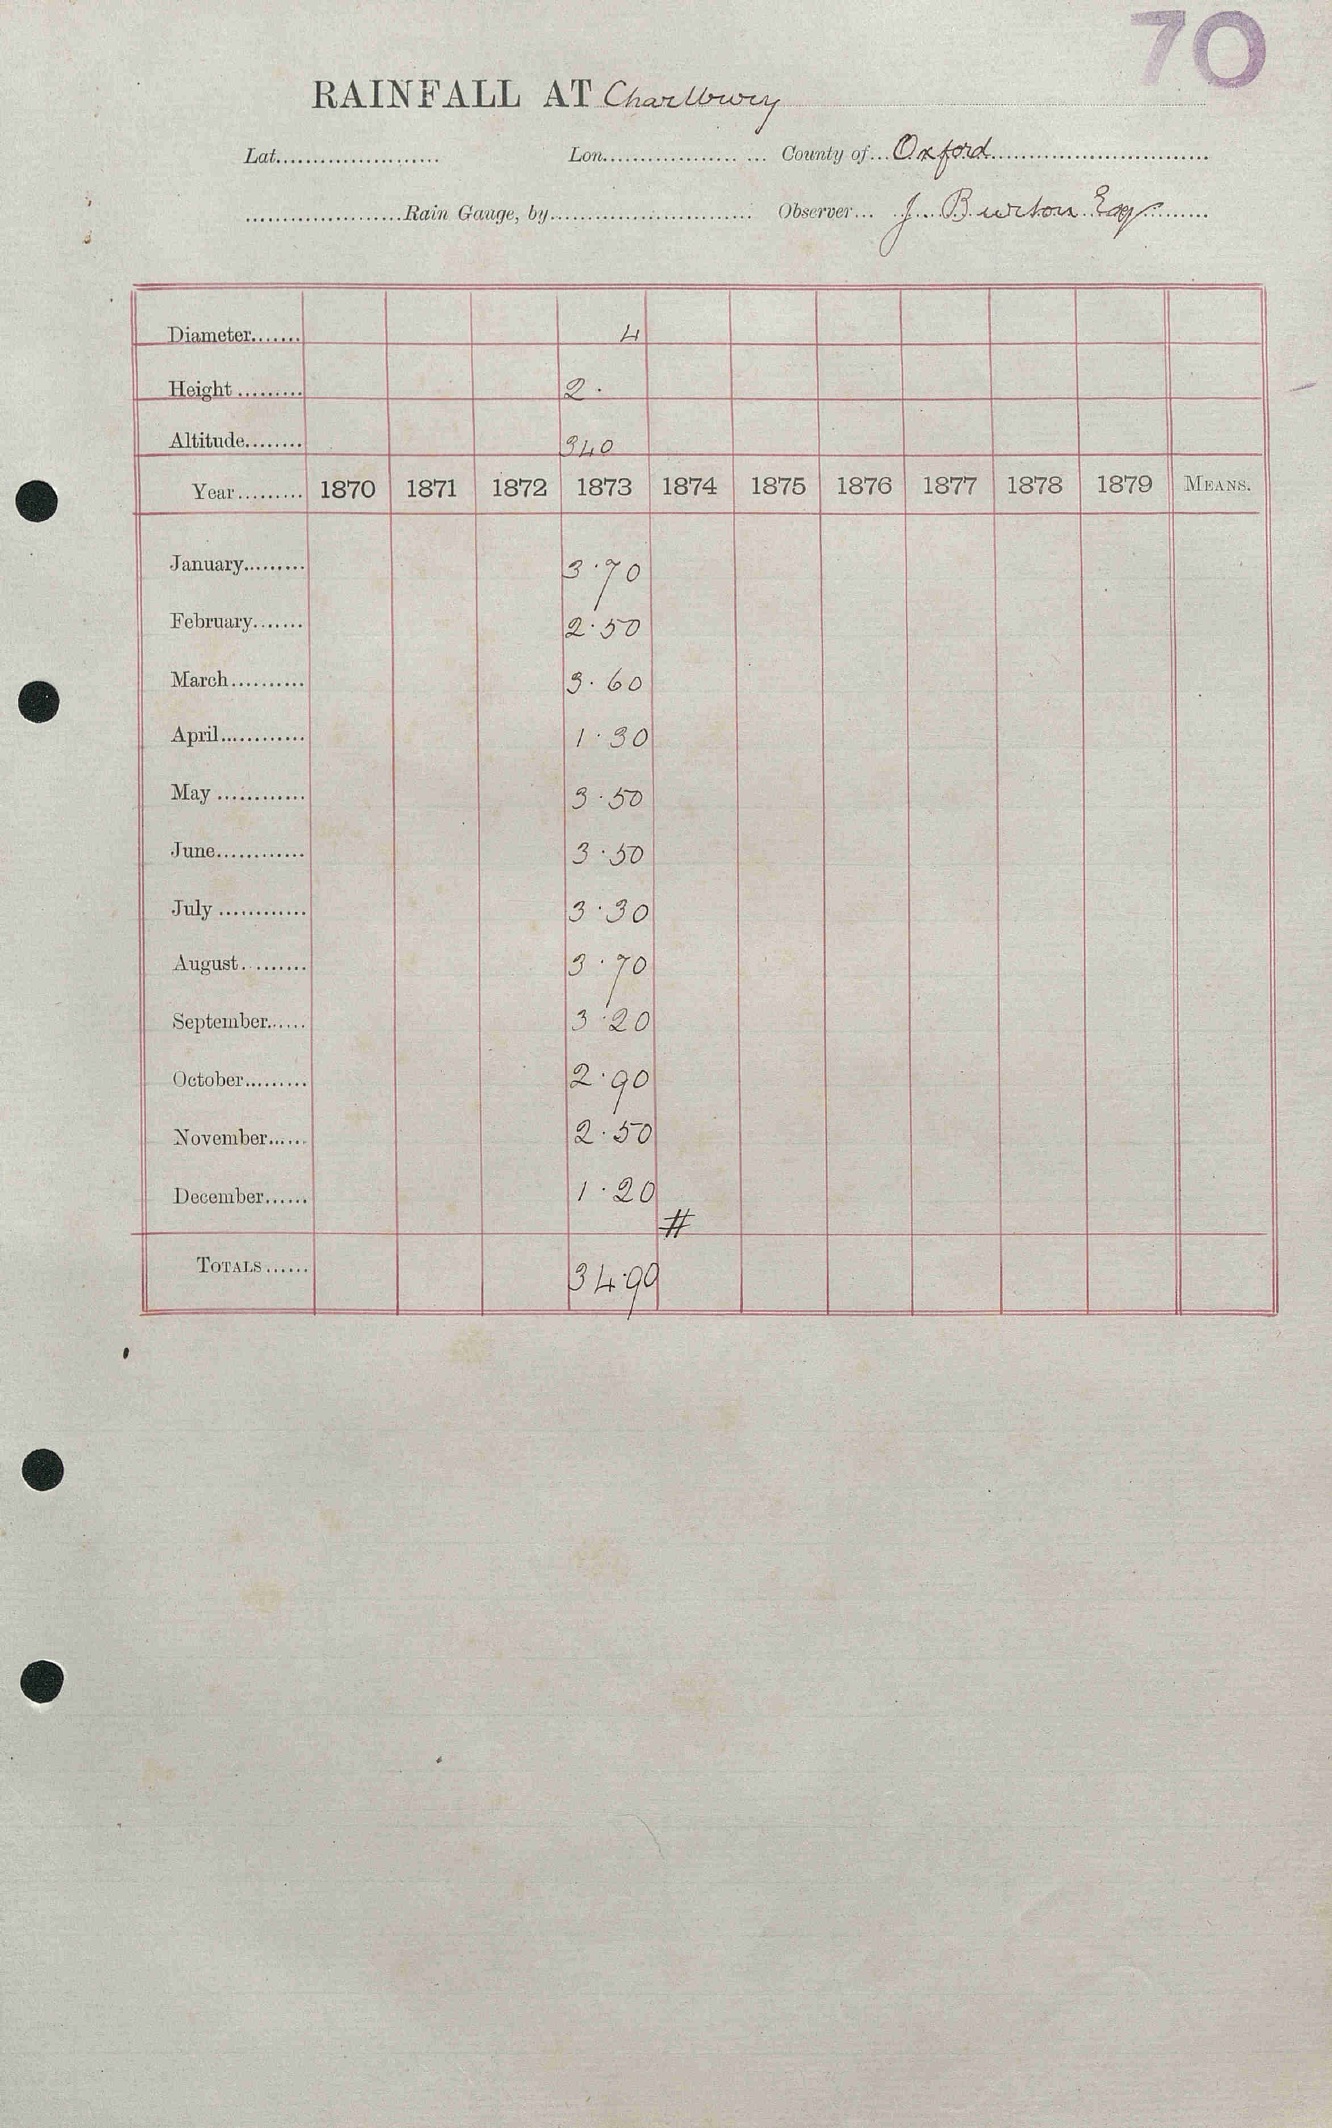 70
RAINFALL AT Charlbury
Lat...................... Lon.................. ... County of... Oxford..............................
.....................Rain Gauge, by........................... Observer... J. Burton Esq.......
Diameter....... 4
Height......... 2.
Altitude........ 340
Year......... 1870 1871 1872 1873 1874 1875 1876 1877 1878 1879 MEANS.
January......... 3.70
February....... 2.50
March.......... 3.60
April............ 1.30
May ............ 3.50
June............ 3.50
July ............ 3.30
August......... 3.70
September...... 3.20
October......... 2.90
November...... 2.50
December...... 1.20
#
TOTALS...... 34.90